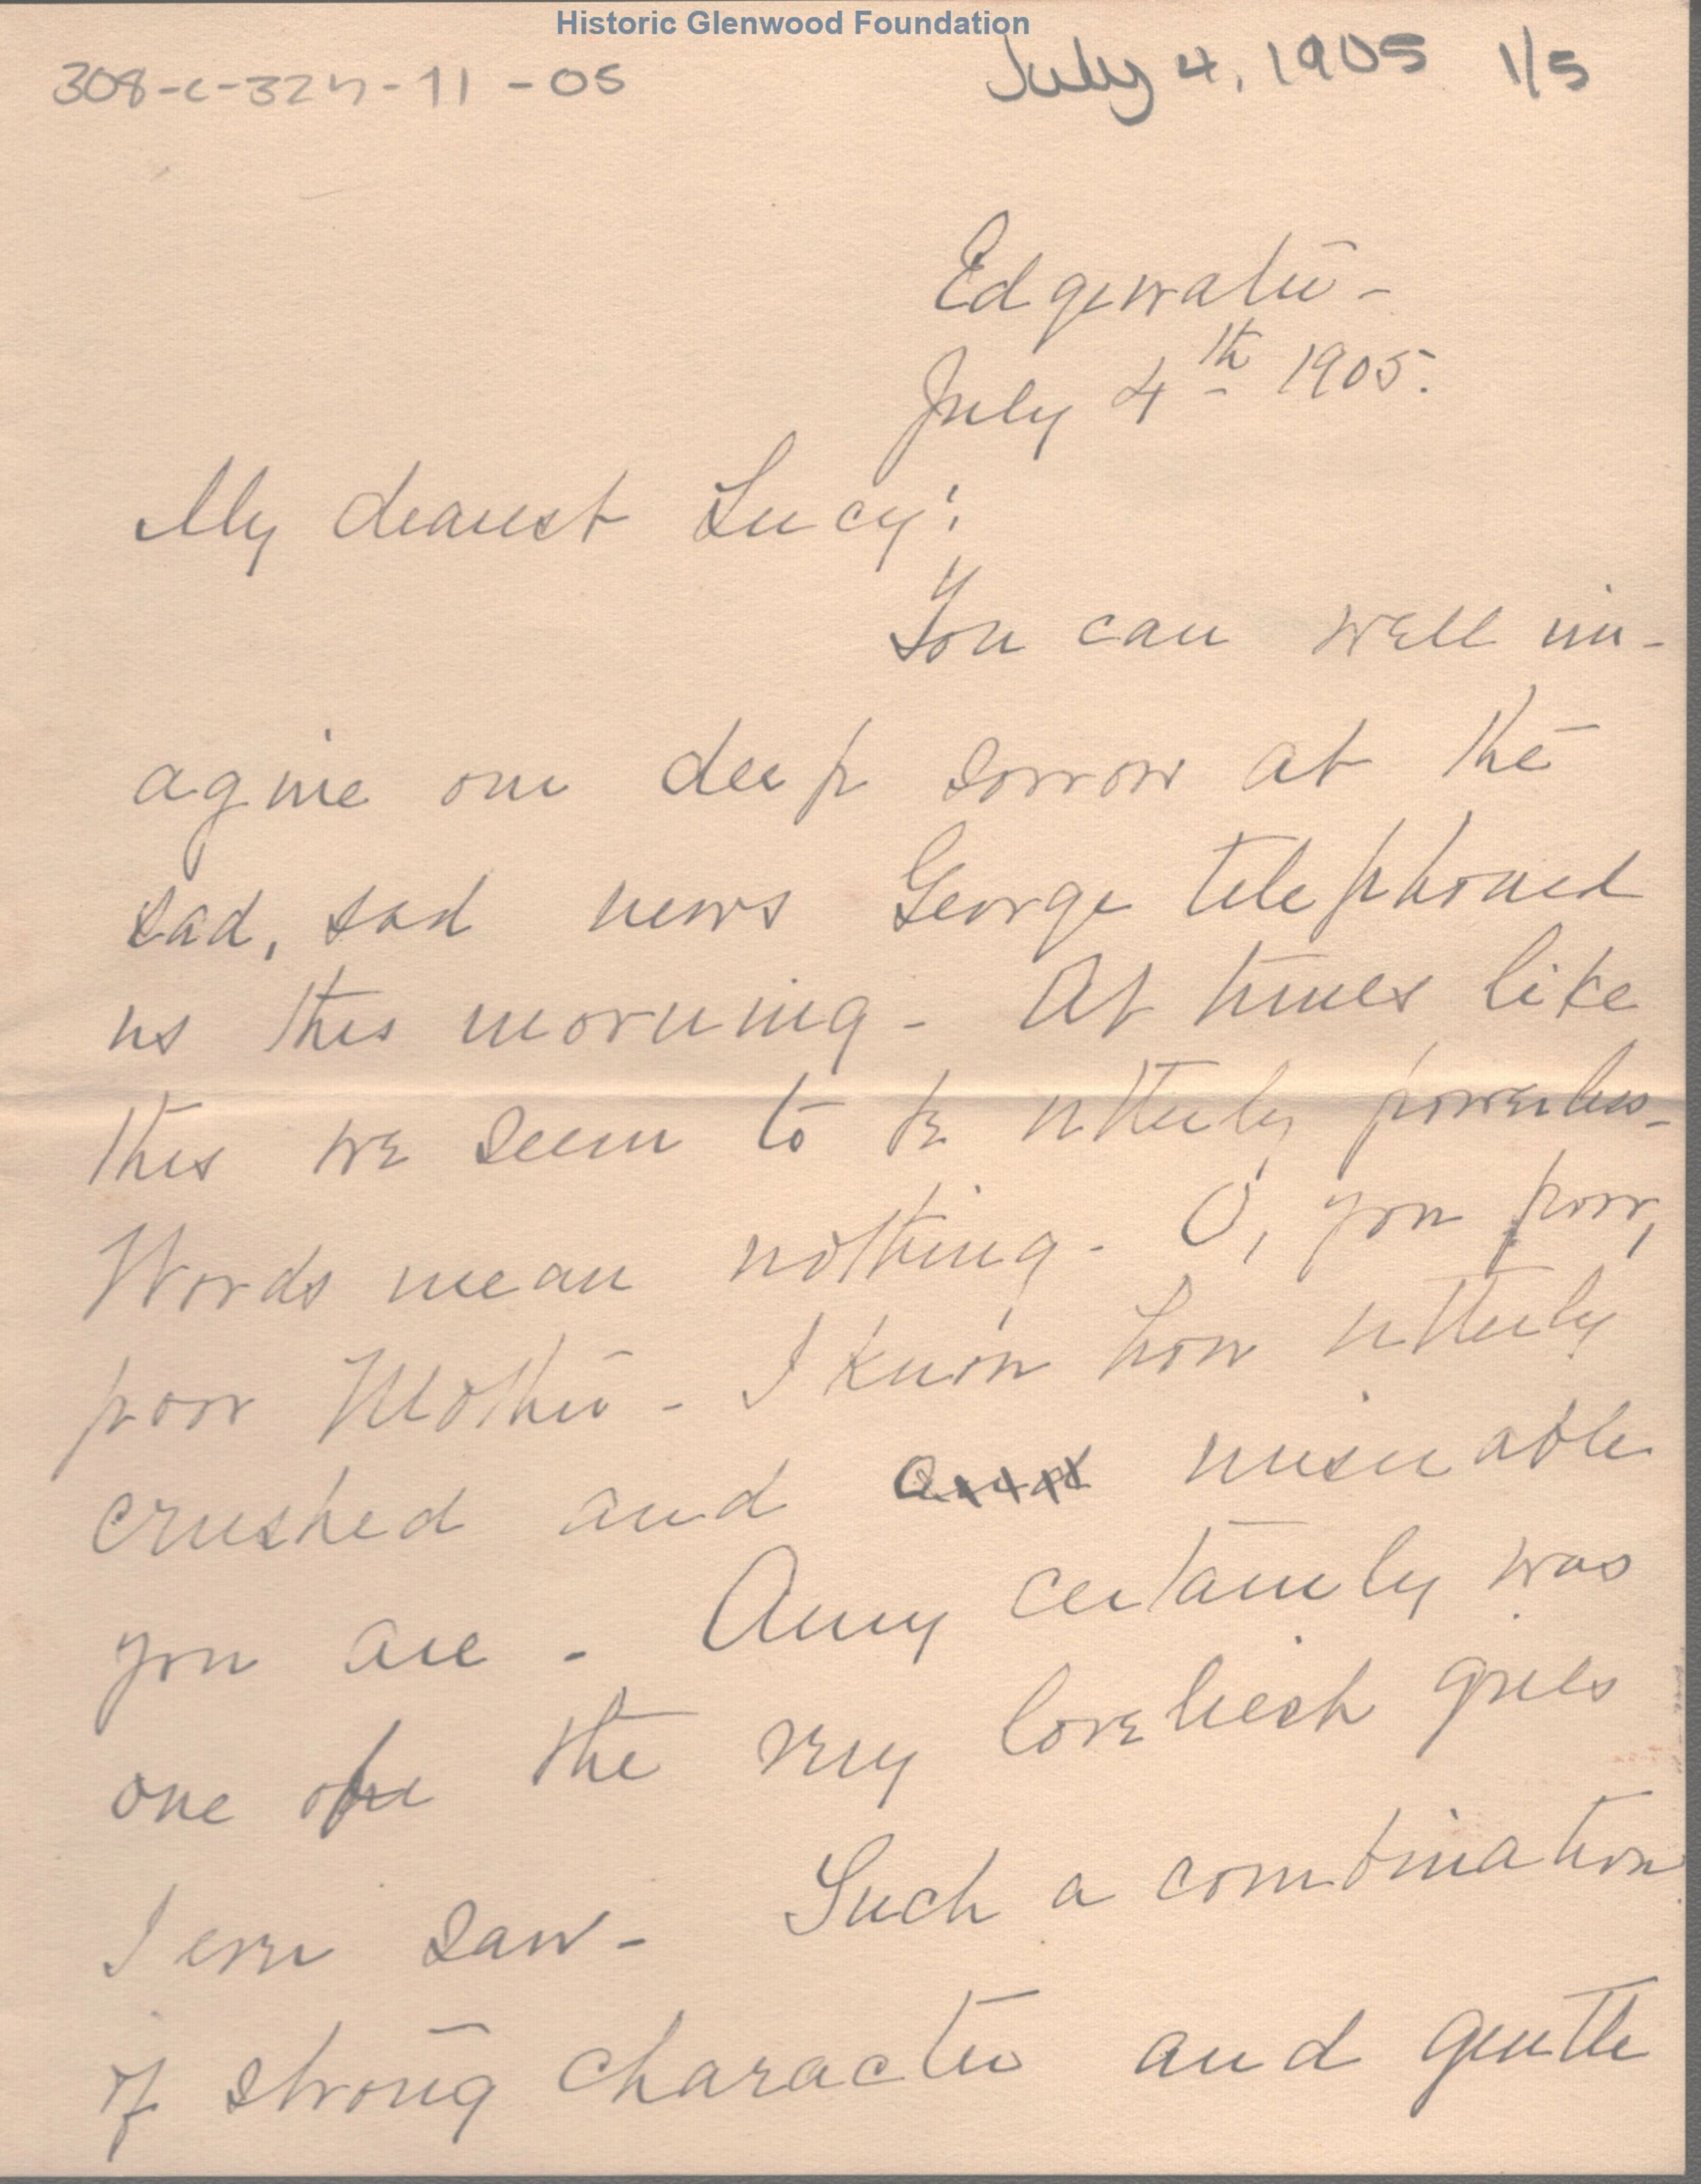 Historic Glenwood Foundation
308-c-324-11-05 July 4, 1905 1/5
Edgewater -
July 4th 1905.
My dearest Lucy:
You can well im-
agine our deep sorrow at the
sad, sad news George telephoned
us this morning - At times like
this we seem to be utterly powerless -
Words mean nothing - O, you poor,
poor Mother - I know how utterly
crushed and miserable
you are - Amy certainly was
one of the very loveliest girls
I ever saw - Such a combination
of strong character and gentle